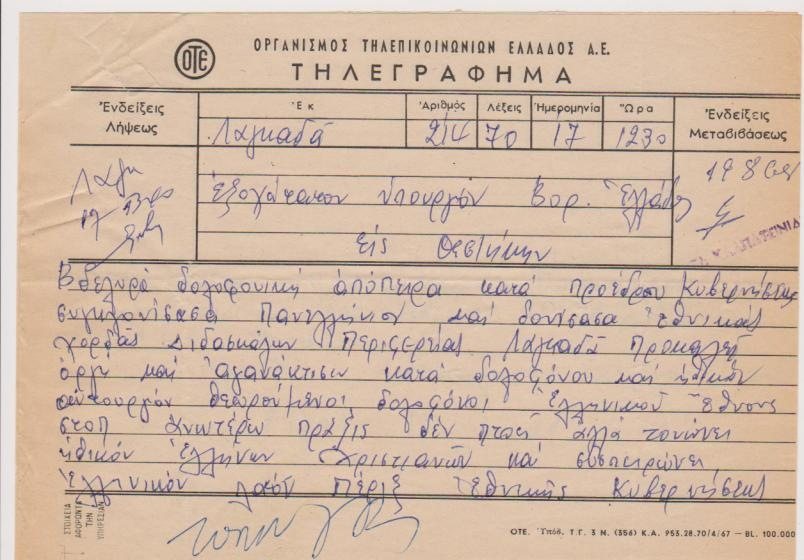 ΟΤΕ
ΟΡΓΑΝΙΣΜΟΣ ΤΗΛΕΠΙΚΟΙΝΩΝΙΩΝ ΕΛΛΑΔΟΣ Α.Ε.
ΤΗΛΕΓΡΑΦΗΜΑ
Ἐνδείξεις Λήψεως
Ἐκ
Ἀριθμός
Λέξεις
Ἡμερομηνία
Ὥρα
Ἐνδείξεις Μεταβιβάσεως
Λαγκαδᾶ 214 70 17 1230
Λαγκ
17
Ἐξοχώτατον Ὑπουργόν Βορ. Ἑλλάδος
εἰς Θεσ/νίκην
Βδελυρά δολοφονική ἀπόπειρα κατά προέδρου Κυβερνήσεως
συγκλονίσασα Πανελλήνιον καί δονίσασα ἐθνικάς
χορδάς Διδασκάλων Περιφερείας Λαγκαδᾶ προκαλεῖ
ὀργή καί ἀγανάκτισιν κατά δολοφόνου καί ἠθικῶν
αὐτουργῶν θεωρούμενοι δολοφόνοι Ἑλληνικοῦ Ἔθνους
στοπ Ἀνωτέρω πράξις δέν πτοεῖ ἀλλά τονώνει
ἠθικόν Ἑλλήνων Χριστιανῶν καί συσπειρώνει
Ἑλληνικόν Λαόν Πέριξ Ἐθνικῆς Κυβερνήσεως
ΣΤΟΙΧΕΙΑ ΑΦΟΡΩΝΤΑ ΤΗΝ ΥΠΗΡΕΣΙΑΝ
ΟΤΕ. Ὑπόδ. Τ.Γ. 3 Ν. (356) Κ.Α. 953.28.70/4/67 — BL. 100.000